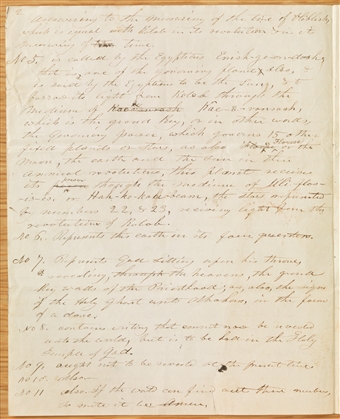 according to the measuring of this
which is equal with Kolob in its revolution and in its
measuring of time.
No 5, is called by the Egyptians Enish-go-on-dosh,
that is one of the governing planets also, &
is said by the Egyptians to be the Sun, &
to borrow its light from Kolob through the
medium of Kae-e-vanrash,
which is the grand Key, or in other words,
the Governing power, which governs 15 other
fixed planets or stars, as also Floeese of the
Moon, the earth and the Sun in their
annual revolutions, this planet receives
its power through the medium of Kli-flos-
is-es, or Hah-ko-kau-beam, the stars represented
by numbers 22, & 23, receiving light from the
revolutions of Kolob.
No 6. Represents this earth in its four quarters.
No 7. Represents God sitting upon his throne,
revealing, through the heavens, the grand
Key words of the Priesthood; as, also, the sign
of the Holy Ghost unto Abraham, in the form
of a dove.
No 8. contains writing that cannot now be revealed
unto the world, but is to be had in the Holy
Temple of God.
No 9. ought not to be revealed at the present time.
No 10. also
No 11 also. If the world can find out these numbers,
so mote it be